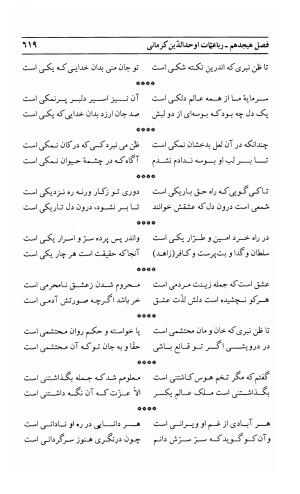 فصل هیجدهم ـ رباعیّات اوحدالدّین کرمانی ۶۱۹
تا ظن نبری که اندرین نکته شکی است تو جان منی بدان خدایی که یکی است
****
سرمایهٔ ما از همه عالم دلکی است آن نیز اسیر دلبر پرنمکی است
یک دل چه بود که بوسه‌ای از دو لبش صد جان ارزد بدانک بی‌هیچ شکی است
****
چندانکه در آن لعل بدخشان نمکی است ظن می نبرد کسی که در کان نمکی است
تا بر لب او بوسه ندادم نشدم آگاه که در چشمهٔ حیوان نمکی است
****
تا کی گویی که راه حق باریکی است دوری تو ز کار ورنه ره نزدیکی است
شمعی است درون دل که عشقش خوانند تا بر نشود، درون دل تاریکی است
****
در راه خرد امین و طرّار یکی است واندر پس پرده سرّ و اسرار یکی است
سلطان وگدا و بت‌پرست و کافر(زاهد) آنجا که حقیقت است هر چار یکی است
****
عشق است که جمله زینت مردمی است محروم شدن ز عشق نامحرمی است
هرکو نچشیده است دلش لذّت عشق خر باشد اگرچه صورتش آدمی است
****
تا ظن نبری که خان و مان محتشمی است یا خواسته و حکم روان محتشمی است
در درویشی اگر تو قانع باشی حقّا و به جان تو که آن محتشمی است
****
گفتم که مگر تخم هوس کاشتنی است معلومم شد که جمله بگذاشتنی است
بگذاشتنی است ملک عالم یکسر الاّ عزّت که آن نگه داشتنی است
****
هر آبادی از غم او ویرانی است هر دانایی در ره او نادانی است
وآن کو گوید که سرّ سرّش دانم چون درنگری هنوز سرگردانی است